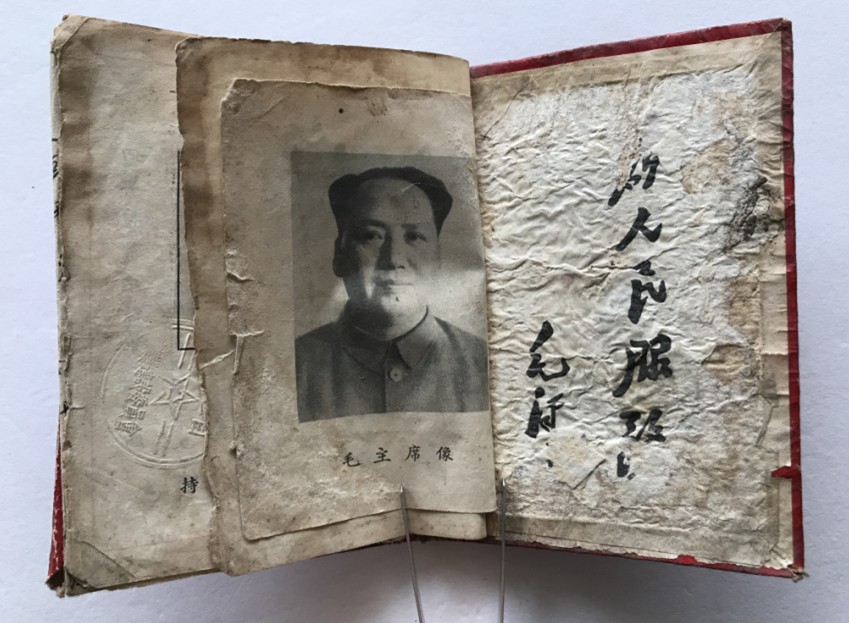 毛主席像
为人民服务
毛泽东
持